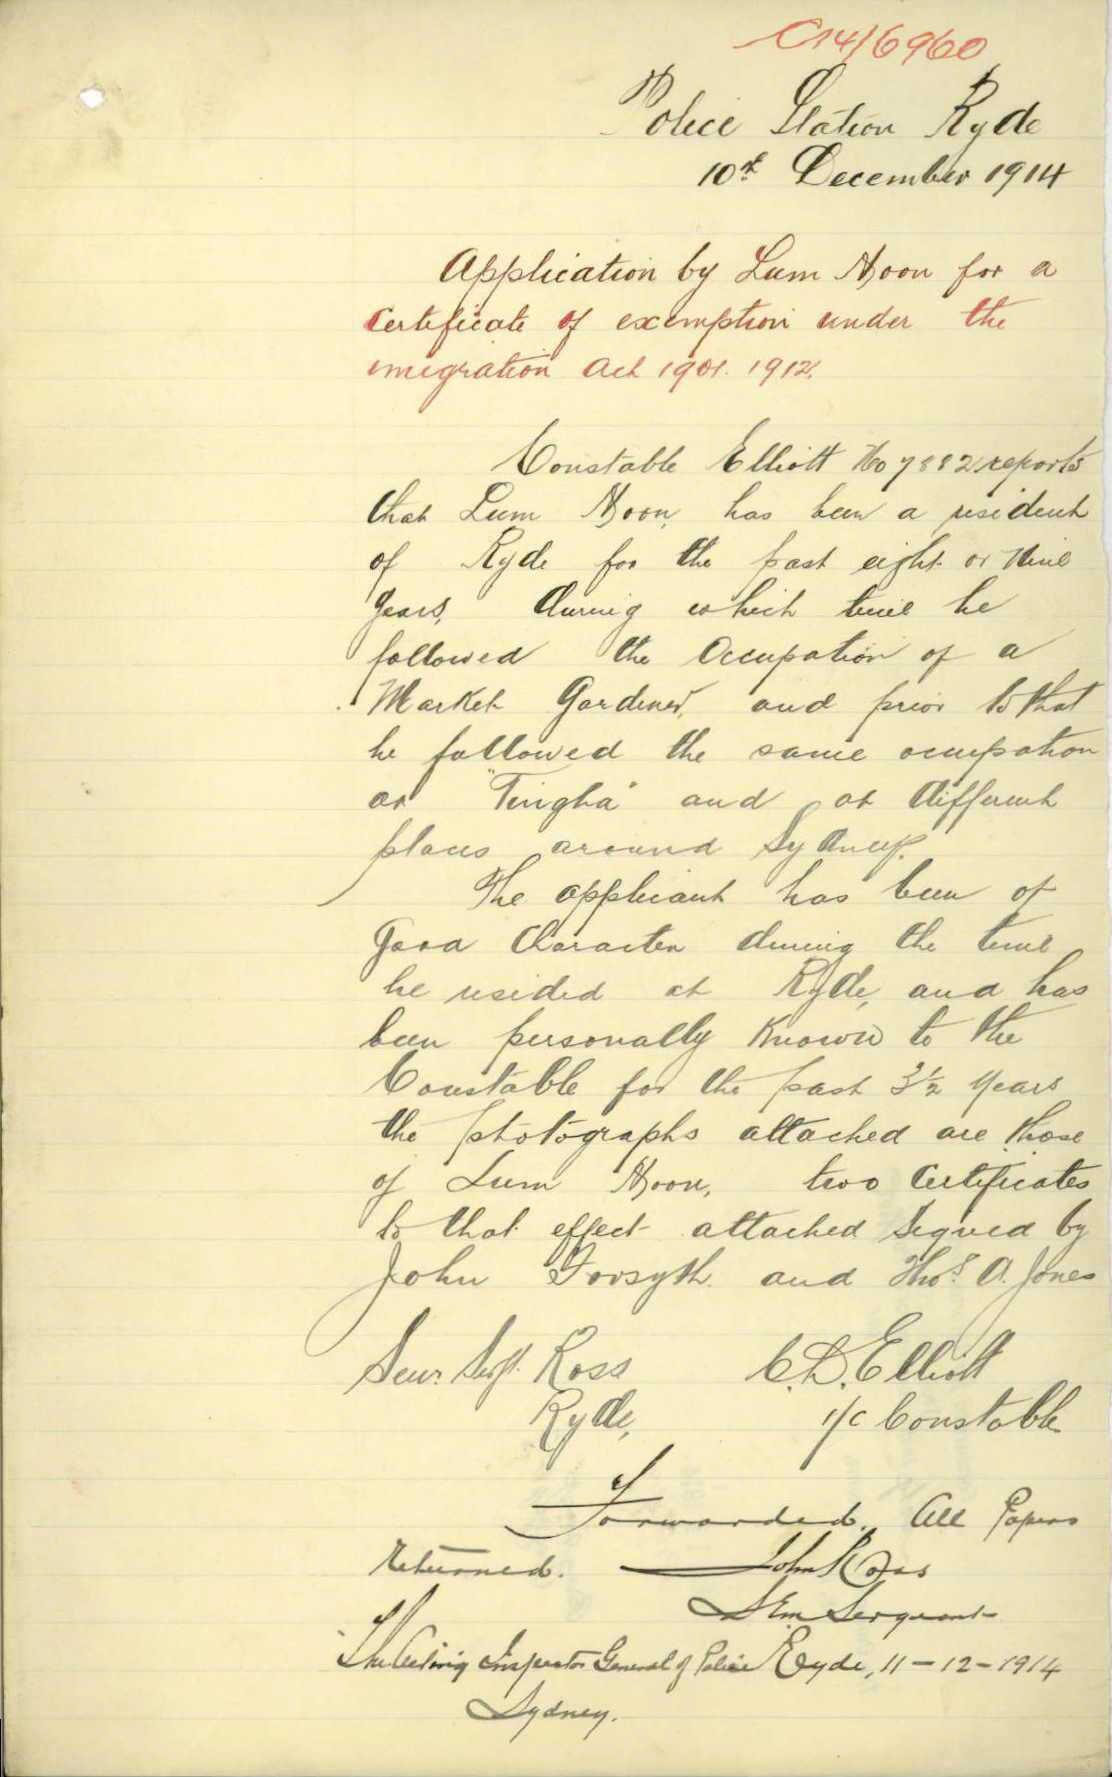 C14/6960
Police Station Ryde
10th December 1914
Application by Lum Moon for a
Certificate of exemption under the
imigration Act 1901. 1912.
Constable Elliott No 7882 reports
that Lum Moon, has been a resident
of Ryde for the past eight or nine
years, during which time he
followed the Occupation of a
Market Gardener, and prior to that
he followed the same occupation
at "Tingha" and at different
places around Sydney.
The applicant has been of
Good Character during the time
he resided at Ryde, and has
been personally Known to the
Constable for the past 3½ years
the photographs attached are those
of Lum Moon, two Certificates
to that effect attached Signed by
John Forsyth and Thos. A. Jones
Senr. Sergt. Ross C.D. Elliott
Ryde, 1/c Constable
Forwarded. All Papers
returned. John Ross
Sen Sergeant
The Acting Inspector General of Police Ryde, 11-12-1914
Sydney.